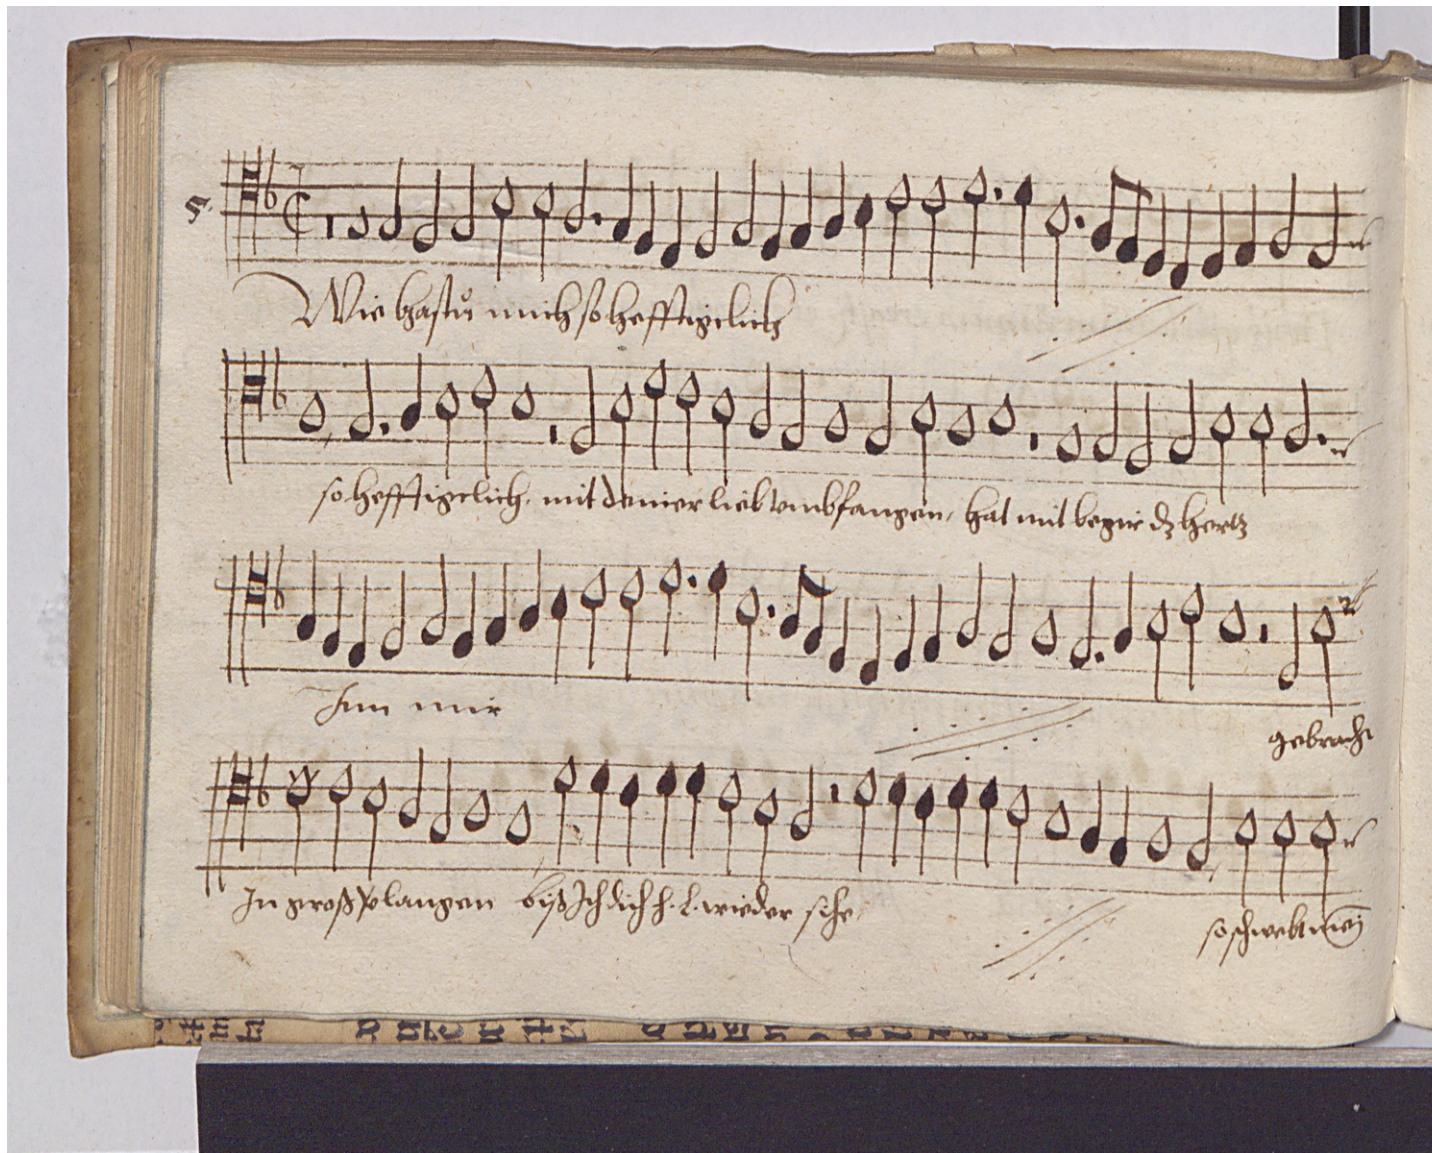 5.
Wie hastu mich so hefftigclich
so hefftigclich. mit deiner lieb vmbfangen, hat mit begir dz hertz
Inn mir
gebracht
In groß plangen biß Ich dich h. l. wieder sehe
so schwebt mein